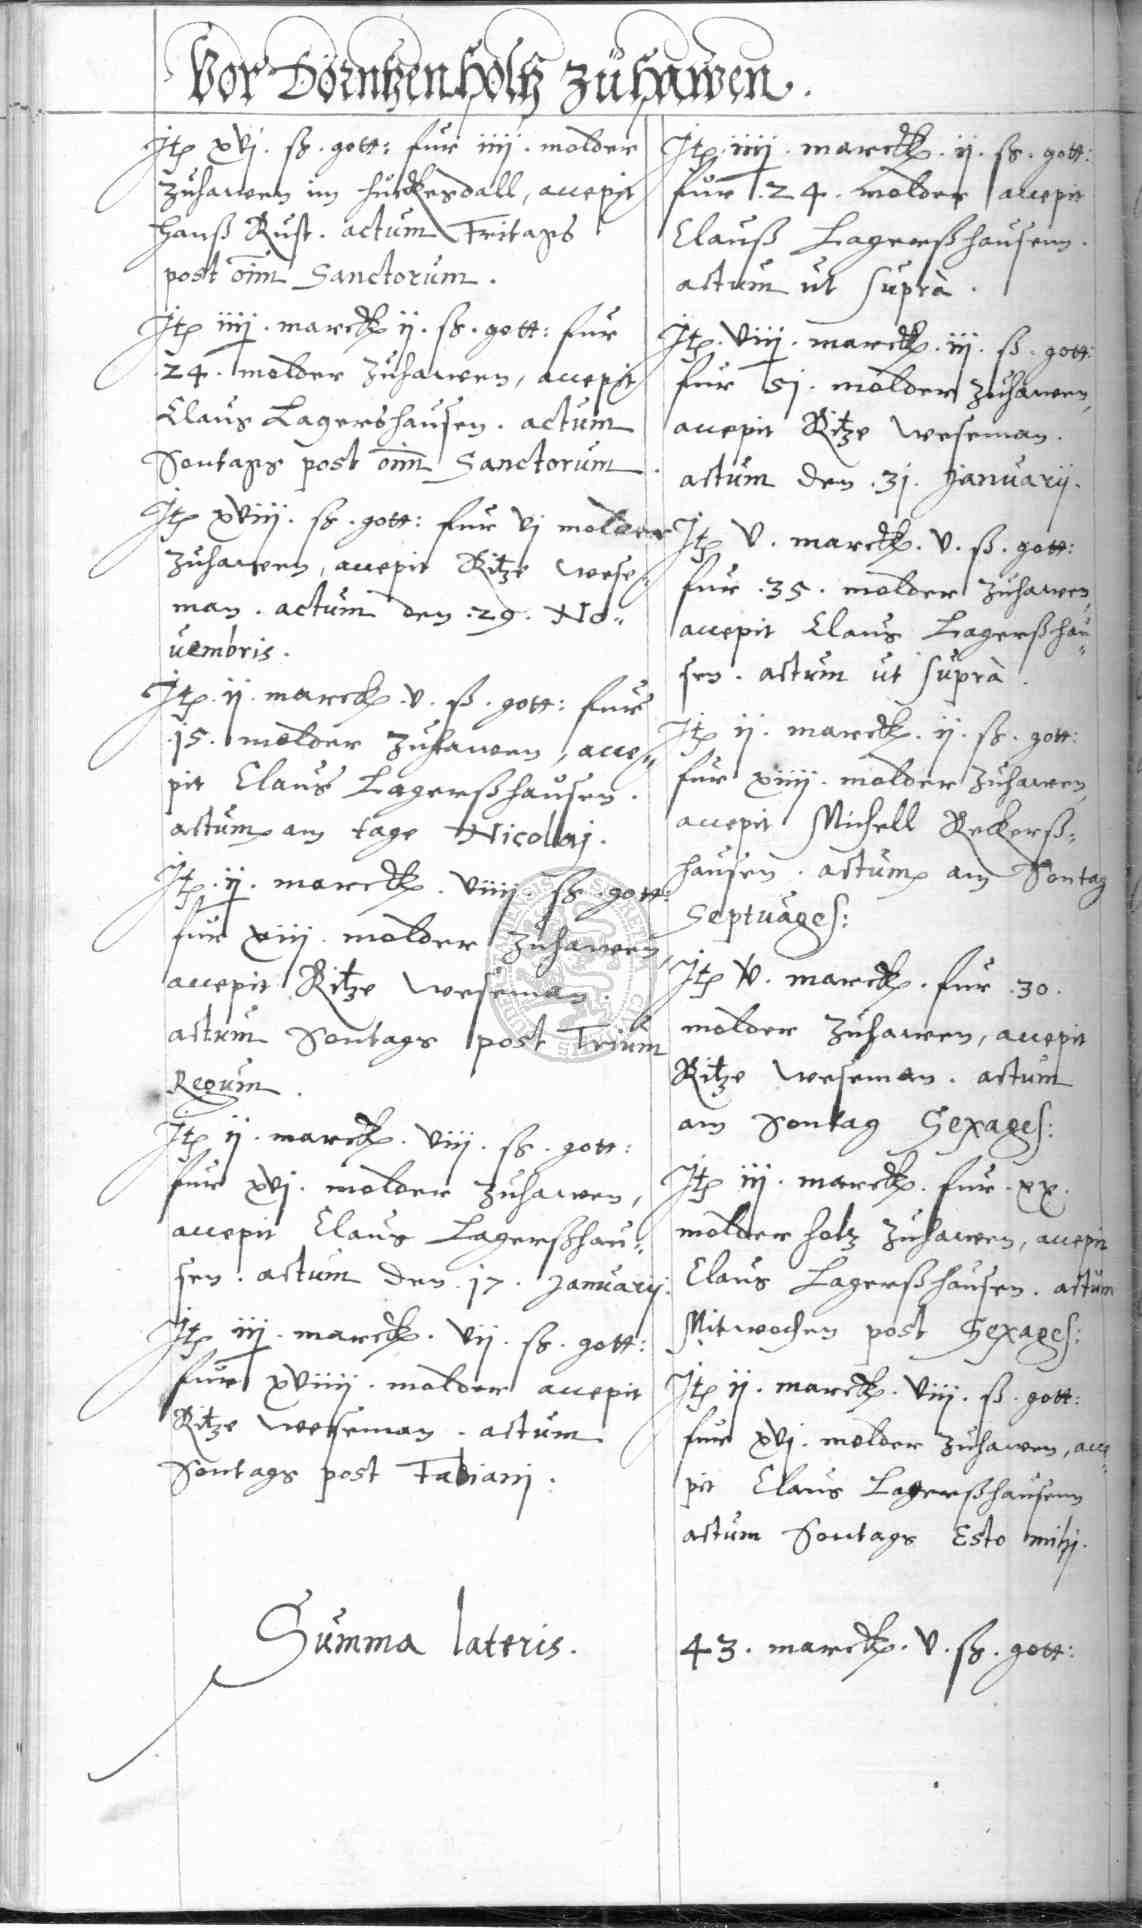 Vor Dörntzenholtz zuhawen.
Itē xvj. ß. gott: fur iiij. molder
zuhawen im hurkesdall, accepit
Hanß Rust. actum Fritags
post oīm Sanctorum.
Itē iiij. marck ij. ß. gott: fur
.24. molder zuhawen, accepit
Claus Lagershausen. actum
Sontags post oīm Sanctorum.
Itē xviij. ß. gott: fur vj molder
zuhawen, accepit Ritze Wese„
man. actum den .29. No„
vembris.
Itē ij. marck v. ß. gott: fur
.15. molder zuhawen, acce„
pit Claus Lagerßhausen.
actum am tage Nicolaj.
Itē ij. marck. viiij. ß. gott:
fur xiij. molder zuhawen,
accepit Ritze Weseman.
actum Sontags post Trium
Regum.
Itē ij. marck. viij. ß. gott:
fur xvj. molder zuhawen,
accepit Claus Lagerßhau„
sen. actum den .17. January.
Itē iij. marck. vij. ß. gott:
fur xviiij. molder accepit
Ritze Weseman. actum
Sontags post Fabiani.
Itē iiij. marck. ij. ß. gott:
fur .24. molder accepit
Clauß Lagerßhausenn.
actum ut suprà.
Itē viij. marck. iij. ß. gott:
fur 51. molder zuhawen,
accepit Ritze Weseman.
actum den .31. January.
Itē v. marck. v. ß. gott:
fur .35. molder zuhawen,
accepit Claus Lagerßhau„
sen. actum ut suprà.
Itē ij. marck. ij. ß. gott:
fur xiiij. molder zuhawen,
accepit Michell Reckerß„
hausen. actum am Sontag
Septuages:
Itē v. marck. fur .30.
molder zuhawen, accepit
Ritze Weseman. actum
am Sontag Sexages:
Itē iij. marck. fur .xx.
molder holz zuhawen, accepit
Claus Lagerßhausen. actum
Mitwochen post Sexages:
Itē ij. marck. viij. ß. gott:
fur xvj. molder zuhawen, acce„
pit Claus Lagerßhausenn
actum Sontags Esto mihj.
Summa lateris. 43. marck. v. ß. gott: